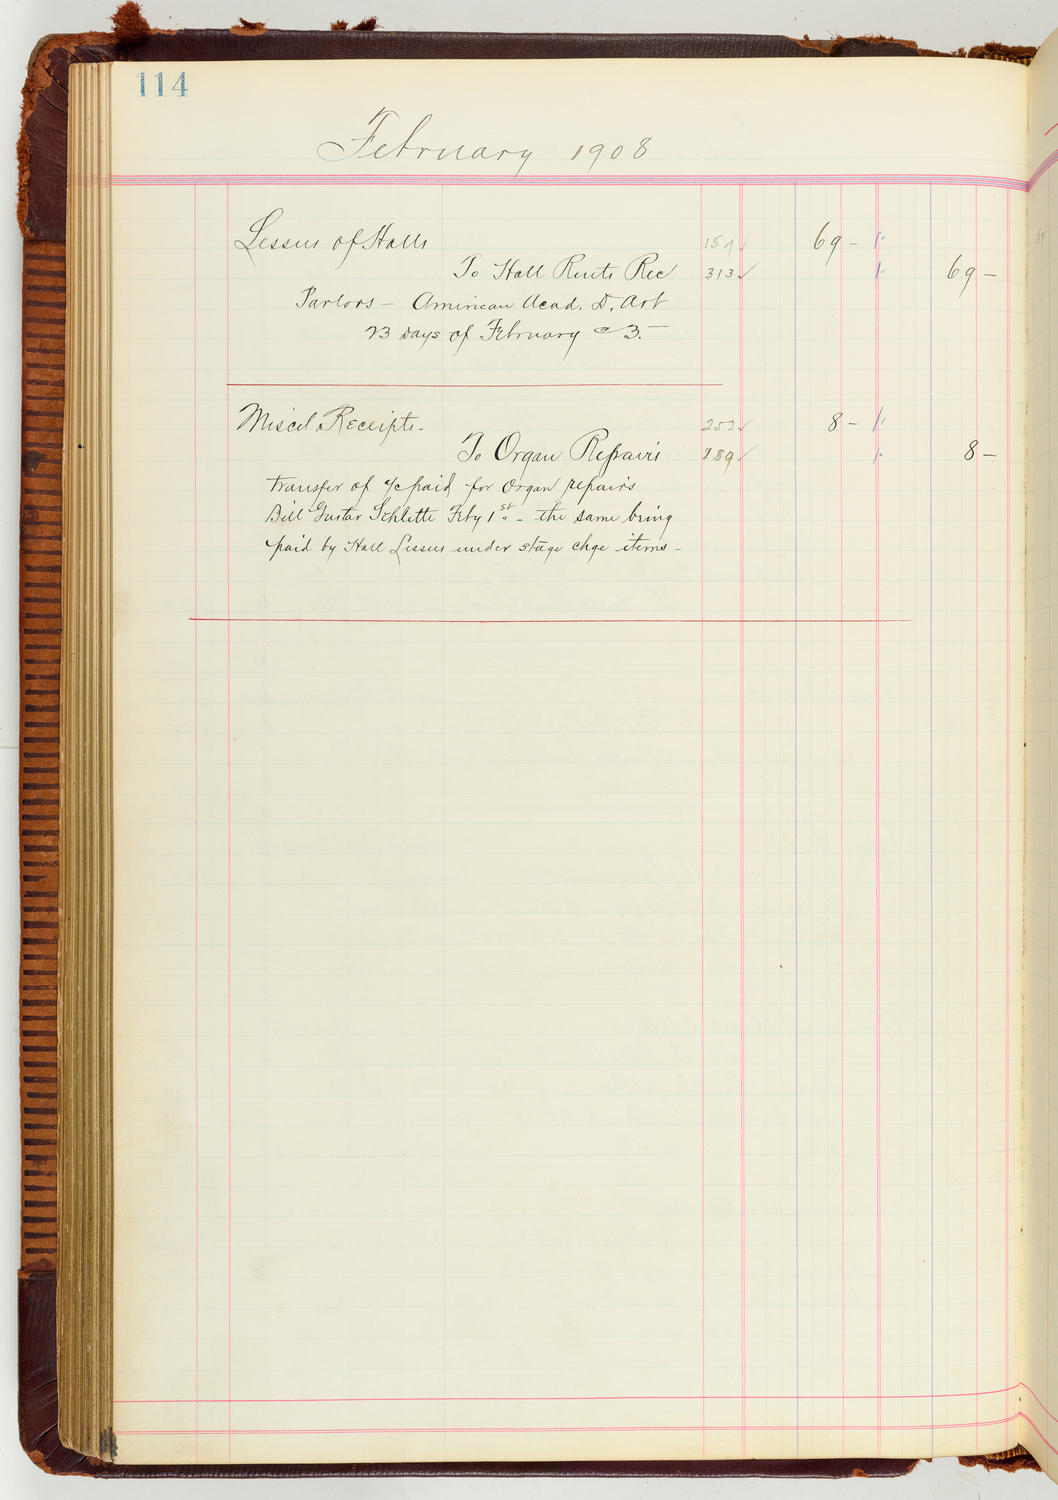 114
February 1908
Lessees of Halls 157 ✓ 69 –
To Hall Rents Rec 313 ✓ 69 –
Parlors – American Acad. D. Art
23 Days of February @ 3. –
Miscel. Receipts – 252 ✓ 8 –
To Organ Repairs 189 ✓ 8 –
transfer of a/c paid for Organ repairs
Bill Gustav Schlette Feby 1st – the same being
paid by Hall Lessees under stage chge items –